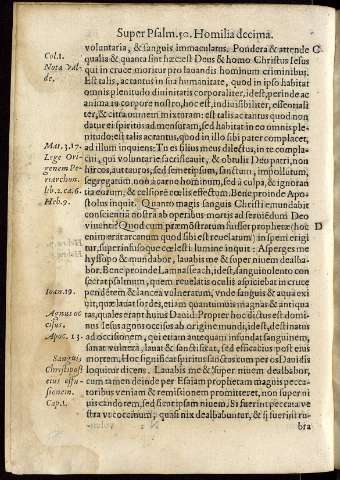 Super Psalm. 50. Homilia decima.
voluntaria, & sanguis immaculatus. Pondera & attende C
Col. 1.
qualia & quanta sint hæc: est Deus & homo Christus Iesus
Nota val-
qui in cruce moritur pro lauandis hominum criminibus.
de.
Est talis, ac tantus in sua humanitate, quod in ipso habitat
omnis plenitudo diuinitatis corporaliter, idest, perinde ac
anima in corpore nostro, hoc est, indiuisibiliter, essentiali-
ter, & citra omnem mixtoram: est talis ac tantus quod non
datur ei spiritus ad mensuram, sed habitat in eo omnis ple-
nitudo: est talis ac tantus, quod in illo sibi pater complacet,
Mat. 3. 17.
ad illum inquiens: Tu es filius meus dilectus, in te compla-
Lege Ori-
cui, qui voluntarie sacrificauit, & obtulit Deo patri, non
genem Pe-
hircos, aut tauros, sed semetipsum, sanctum, impollutum,
riarchon.
segregatum non à carne hominum, sed à culpa, & ignorātia
lib. 2. ca. 6.
eorum, & celsiorē cœlis effectum. Bene proinde Apo-
Heb. 9.
stolus inquit. Quanto magis sanguis Christi emundabit
conscientiā nostrā ab operibus mortis ad seruiēdum Deo
viuenti? Quod cum præmōstratum fuisset prophetæ (hoc D
enim erat arcanum quod sibi est reuelatum) in spem erigi
tur, superni suoque cœlesti lumine inquit: Asperges me
hyssopo & mundabor, lauabis me & super niuem dealba-
bor. Bene proinde Lamnasseach, idest, sanguinolento con
secrat psalmum, quem reuelatis oculis aspiciebat in cruce
Ioan. 19.
pendētem & lancea vulneratum, vnde sanguis & aqua exi
uit, quæ lauat sordes, etiam quantumuis magnas & antiqua
Agnus oc
tas, quales erāt huius Dauid. Propter hoc dictus est domi-
cisus.
nus Iesus agnus occisus ab origine mundi, idest, destinatus
Apoc. 13.
ad occisionem, qui etiam antequam infundat sanguinem,
sanat vulnera, lauat & sanctificat, sed efficatius post eius
Sanguis
mortem. Hoc significat spiritus sanctus cum per os Dauidis
Christi post
loquitur dicens. Lauabis me & super niuem dealbabor,
eius effu-
cum tamen deinde per Esaiam prophetam magnis pecca-
sionem.
toribus veniam & remissionem promitteret, non super ni
Cap. 1.
uis candorem, sed sicut ipsam niuem. Si fuerint peccata ve
stra vt coccinum, quasi nix dealbabuntur, & si fuerint ru-
bra